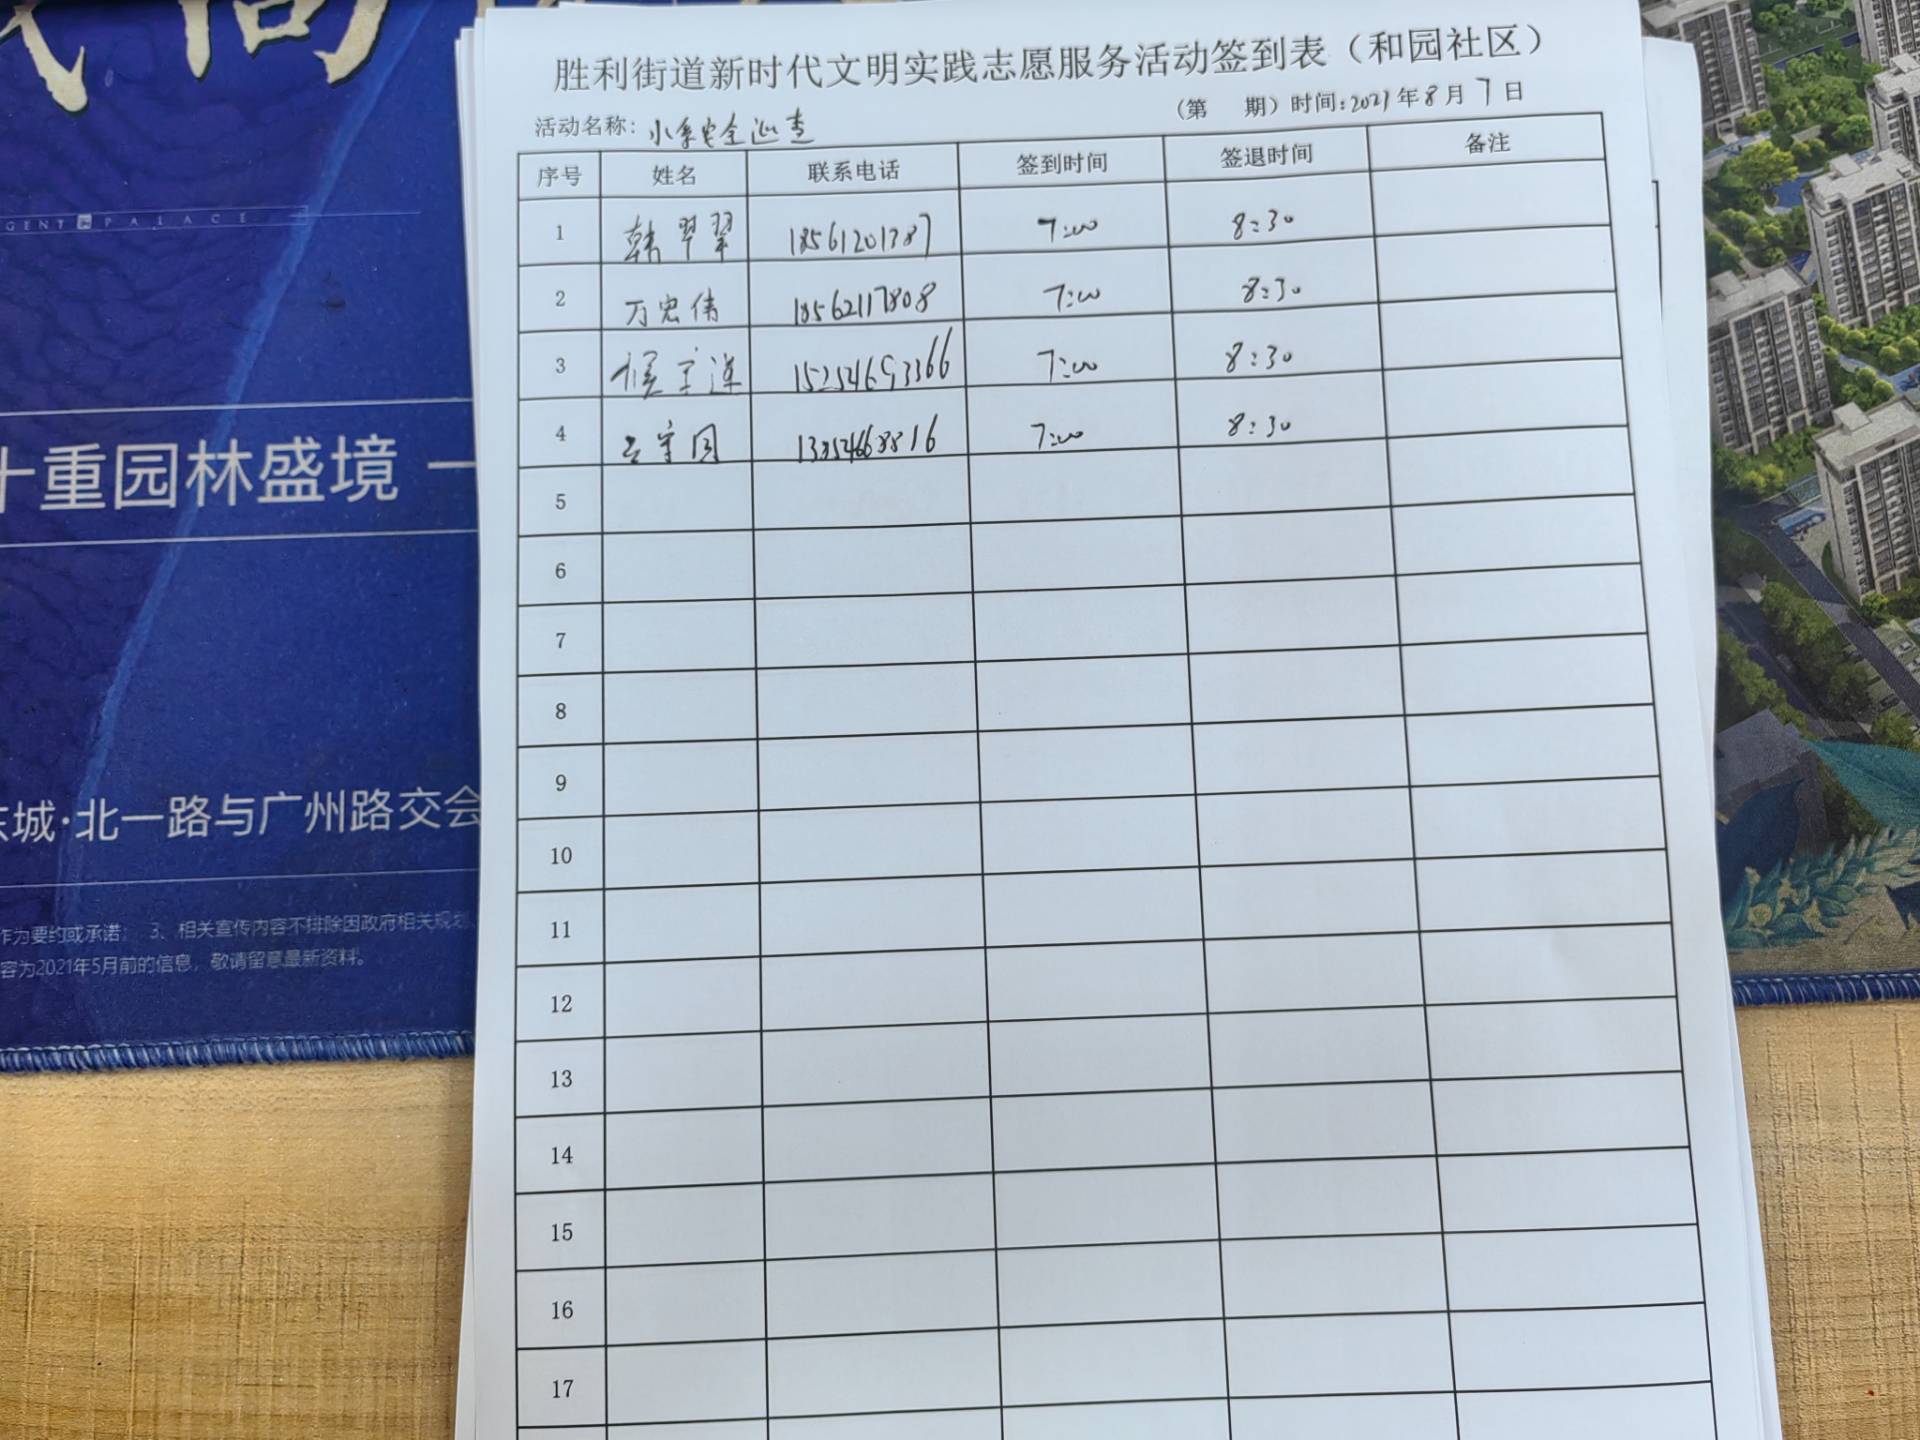 GENT PALACE
十重园林盛境 一
东城·北一路与广州路交会
作为要约或承诺； 3、相关宣传内容不排除因政府相关规划、
容为2021年5月前的信息，敬请留意最新资料。
胜利街道新时代文明实践志愿服务活动签到表（和园社区）
（第 期）时间:2021年8月7日
活动名称: 小区安全巡查
序号 姓名 联系电话 签到时间 签退时间 备注
1 韩翠翠 18561201787 7:00 8:30
2 万宏伟 18562117808 7:00 8:30
3 15254693366 7:00 8:30
4 7:00 8:30
5
6
7
8
9
10
11
12
13
14
15
16
17